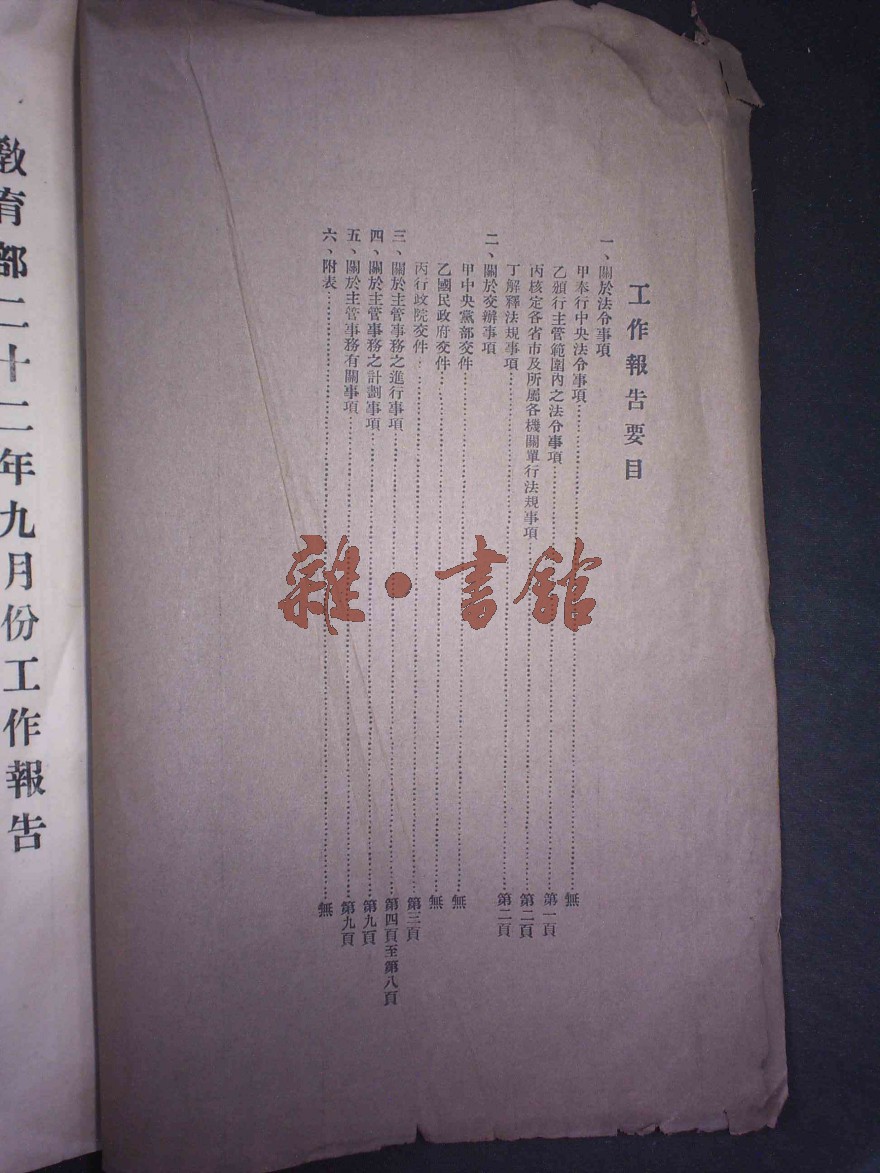 工作報告要目
一、關於法令事項
甲奉行中央法令事項……無
乙頒行主管範圍內之法令事項……第一頁
丙核定各省市及所屬各機關單行法規事項……第二頁
丁解釋法規事項……第二頁
二、關於交辦事項
甲中央黨部交件……無
乙國民政府交件……無
丙行政院交件……第三頁
三、關於主管事務之進行事項……第四頁至第八頁
四、關於主管事務之計劃事項……第九頁
五、關於主管事務有關事項……第九頁
六、附表……無
教育部二十二年九月份工作報告
雜·書館